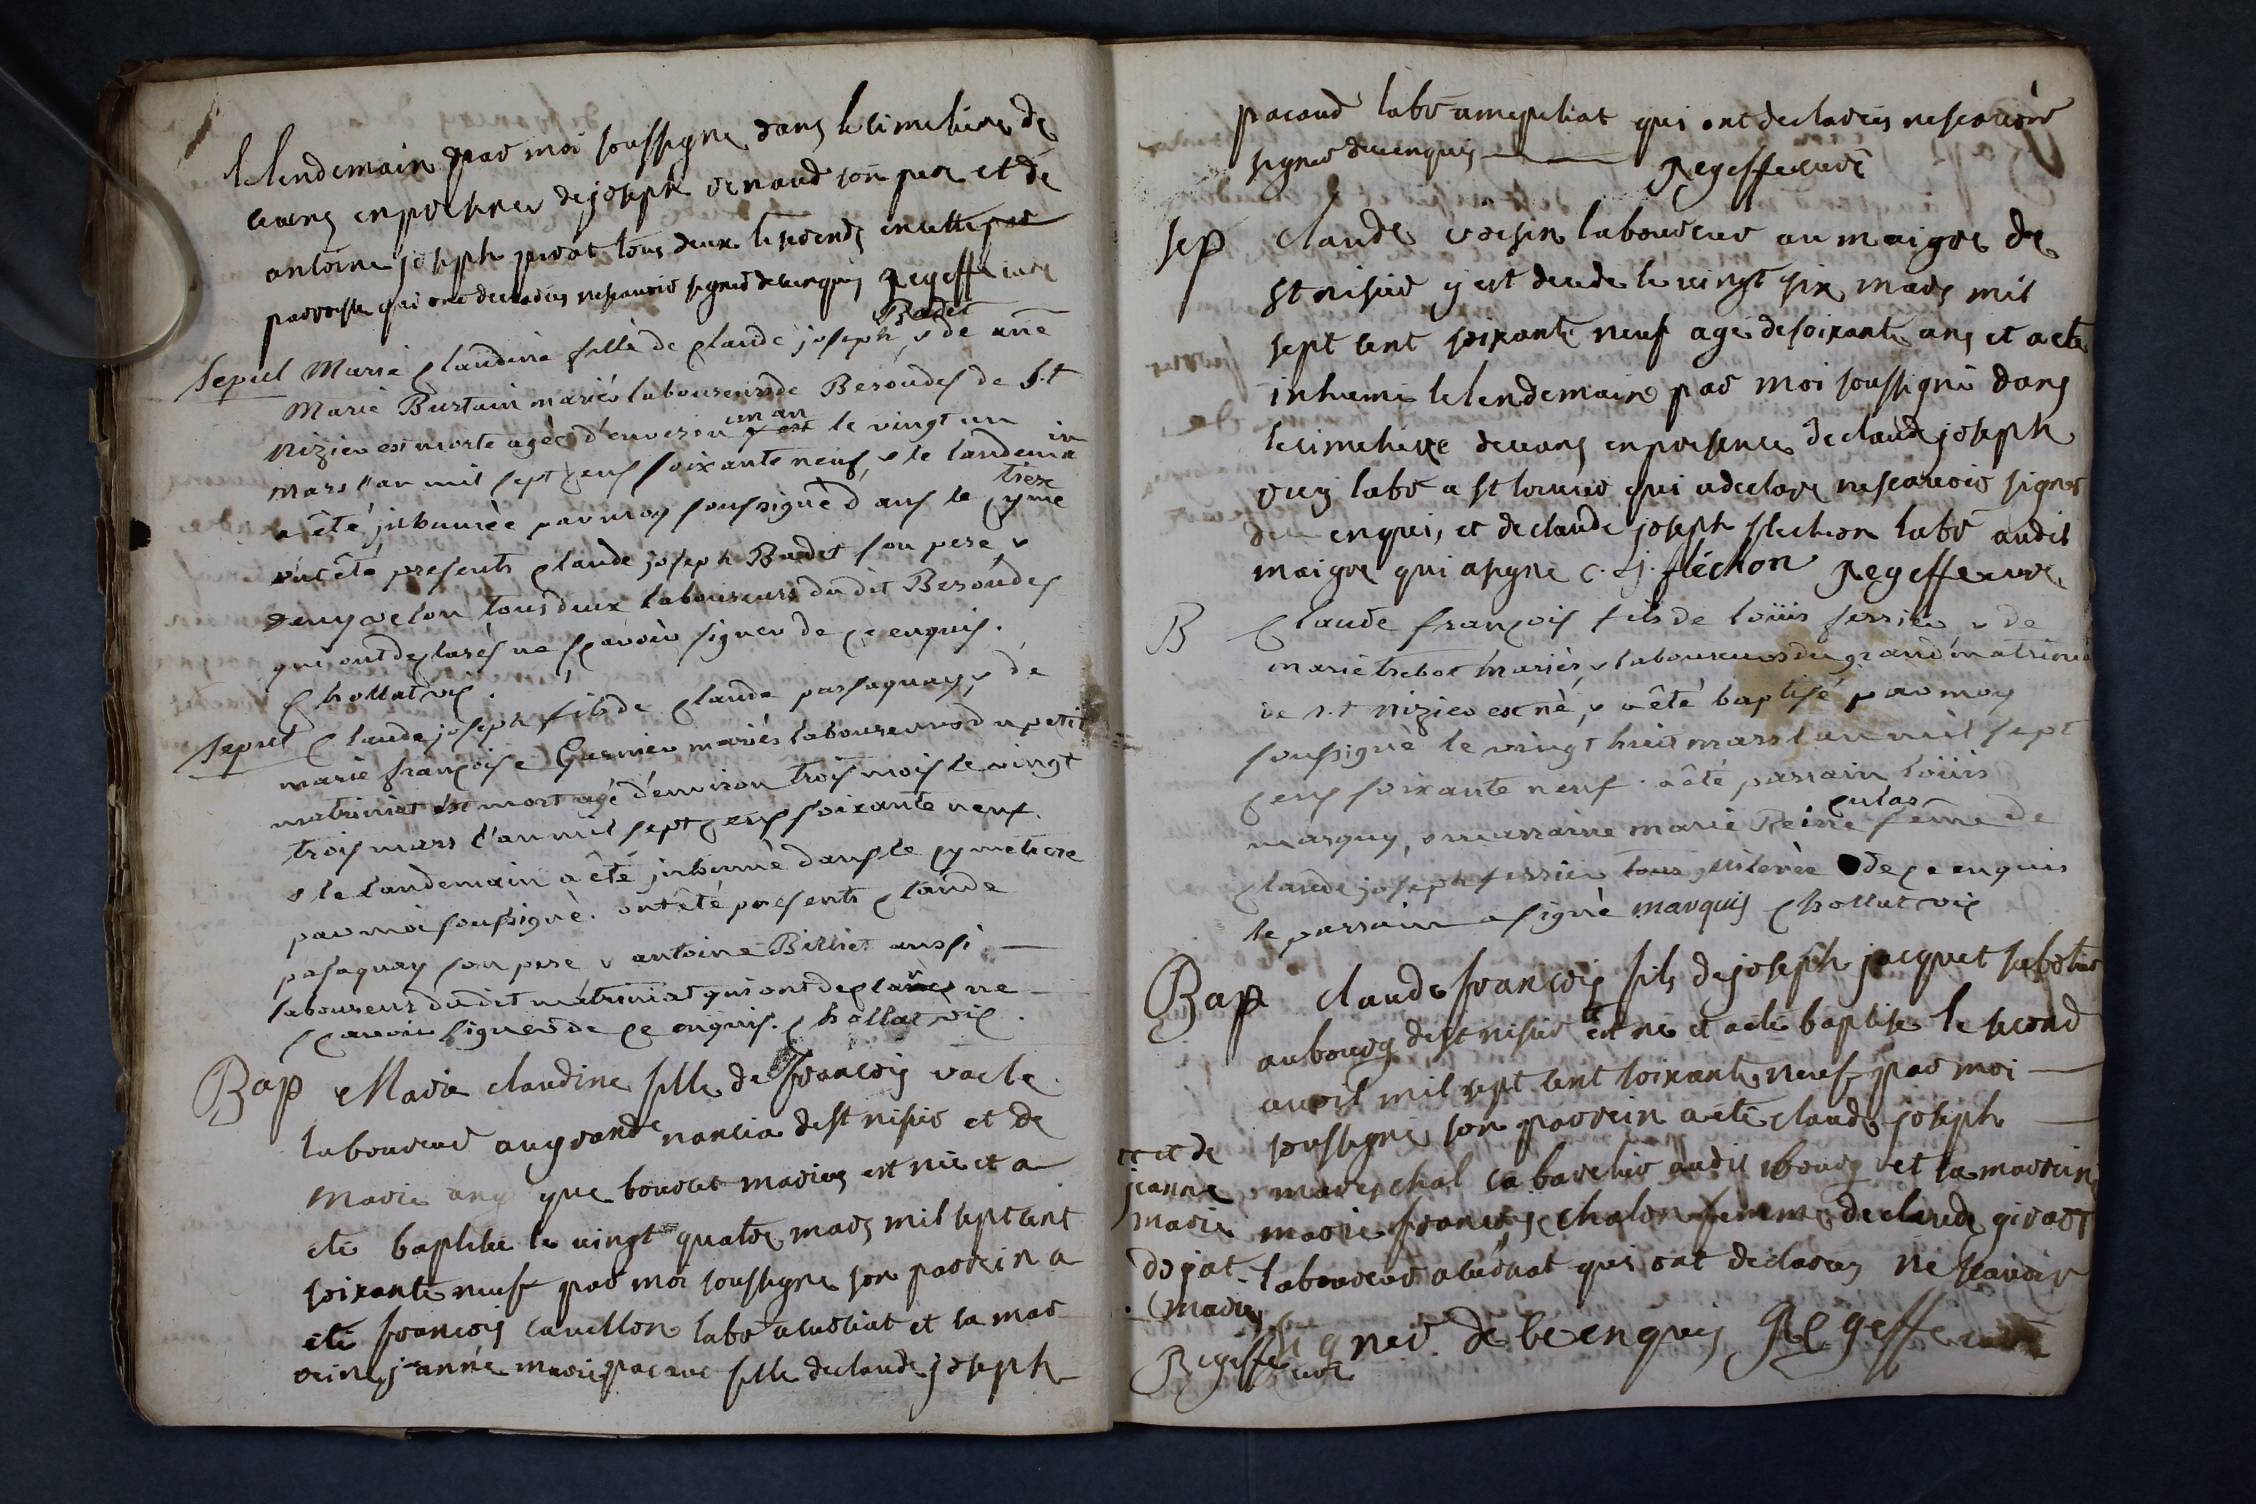 le lendemain par moi soussigne dans le cimetiere de
ceans en presence de joseph renaud son pere et de
antoine joseph pivat tous deux residends en cette par
parroisse qui ont declares ne scavoir signer de ce enquis Regeffe curé
Sepul Marie Claudine fille de Claude joseph Badet & de anê
Marie Burtain mariés laboureurs de Besoudes de S.t
Nizier est morte agée d'environ un an le vingt un
mars l'an mil sept cens soixante neuf, & le landemain
a été inhumée par moy soussigné dans le cymetiere
ont été presents Claude joseph Badet son pere, &
denys velon tous deux laboureurs du dit Besoudes
qui ont declarés ne scavoir signer de ce enquis.
Chollat vic.
Sepul Claude joseph fils de Claude passaquay, & de
marie françoise Garnier mariés laboureurs du petit
matrinat est mort agé d'environ trois mois le vingt
trois mars l'an mil sept cens soixante neuf.
& le landemain a été inhumé dans le cymetiere
par moi soussigné. ont été presents Claude
pasaquay son pere & antoine Billiet aussi
laboureurs du dit matrinat qui ont declarés ne
scavoir signer de ce enquis. Chollat vic.
Bap Marie claudine fille de françois vacle
laboureur au grand nancia de st nisier et de
Marie ang que bourcet maries est née et a
ete baptisee le vingt quatre mars mil sept cent
soixante neuf par moi soussigne son parrein a
ete francois cavillon labr a et sa mar
reine jeanne marie pacaud fille de claude joseph
pacaud labr qui ont declares ne scavoir
signer de ce enquis Regeffe curé
sep claude voisin laboureur au maigre de
st nisier y est decede le vingt six mars mil
sept cent soixante neuf age de soixante ans et a ete
inhumé le lendemain par moi soussigné dans
le cimetiere de ceans en presence de claude joseph
labr a st qui a declare ne scavoir signer
de ce enquis, et de claude joseph flechon labr audit
maigre qui a signe C. j. fléchon Regeffe curé
B Claude françois fils de loüis ferrier & de
marie trebot mariés, & laboureurs du grand matrinat
de s.t nizier est né, & a été baptisé par moy
soussigné le vingt huit mars l'an mil sept
cens soixante neuf. a été parrain loüis
marquy, & marraine marie Reine culas feme de
Claude joseph ferrier tous de ce enquis
le parrain a signé marquis Chollat vic
Bap claude francois fils de joseph jacquet sabotier
au bourg de st nisier est né et a ete baptise le second
avril mil sept cent soixante neuf par moi
soussigne son parrein a ete claude joseph
mareschal cabaretier audit bourg et la marrein
marie francoise chalon femme de claude girard
laboureur a qui ont declares ne scavoir
signer de ce enquis Regeffe curé
et de
jeanne
marie
dojat
maries
Regeffe curé